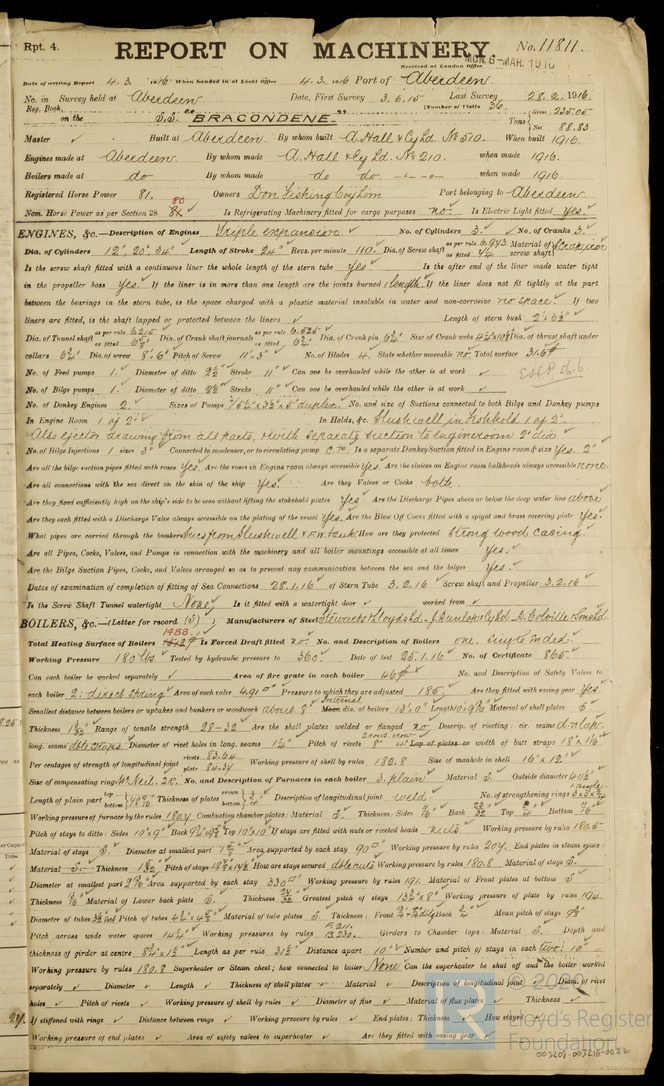 Rpt. 4. REPORT ON MACHINERY. No. 11811.
Received at London Office MON. 6-MAR. 1916
Date of writing Report 4.3.1916 When handed in at Local Office 4.3.1916 Port of Aberdeen
No. in Survey held at Aberdeen Date, First Survey 3.6.15 Last Survey 28.2.1916.
Reg. Book. (Number of Visits 36.
on the S.S. "BRACONDENE." Tons Gross 235.05 Net 88.83
Master ✓ Built at Aberdeen By whom built A. Hall & Cy Ld. No 510. When built 1916.
Engines made at Aberdeen. By whom made A. Hall & Cy Ld. No 210. when made 1916.
Boilers made at do By whom made do do when made 1916.
Registered Horse Power 81. Owners Don Fishing Coy Lim Port belonging to Aberdeen
Nom. Horse Power as per Section 28 80 Is Refrigerating Machinery fitted for cargo purposes no. Is Electric Light fitted Yes.
ENGINES, &c.—Description of Engines Triple expansion. No. of Cylinders 3. No. of Cranks 3.
Dia. of Cylinders 12", 20", 34" Length of Stroke 24" Revs. per minute 110. Dia. of Screw shaft as per rule 6.943 as fitted Material of screw shaft) Scrap iron
Is the screw shaft fitted with a continuous liner the whole length of the stern tube Yes Is the after end of the liner made water tight
in the propeller boss Yes. If the liner is in more than one length are the joints burned 1 length. If the liner does not fit tightly at the part
between the bearings in the stern tube, is the space charged with a plastic material insoluble in water and non-corrosive no space. If two
liners are fitted, is the shaft lapped or protected between the liners ✓ Length of stern bush 2'.6½"
Dia. of Tunnel shaft as per rule 6.215 as fitted Dia. of Crank shaft journals as per rule 6.525 as fitted 6¾" Dia. of Crank pin 6¾" Size of Crank webs Dia. of thrust shaft under
collars 6¾" Dia. of screw 8'.6" Pitch of Screw 11'-3" No. of Blades 4. State whether moveable no. Total surface 31.6
No. of Feed pumps 1. Diameter of ditto Stroke 11" Can one be overhauled while the other is at work ✓
No. of Bilge pumps 1. Diameter of ditto Stroke 11" Can one be overhauled while the other is at work ✓
No. of Donkey Engines 2. Sizes of Pumps duplex. No. and size of Suctions connected to both Bilge and Donkey pumps
In Engine Room 1 of 2" In Holds, &c. Slushwell in Fishhold 1 of 2"
Also ejector drawing from all parts, with separate suction to Engineroom 2" dia
No. of Bilge Injections 1 sizes 3" Connected to condenser, or to circulating pump C.P. Is a separate Donkey Suction fitted in Engine room & size Yes. 2"
Are all the bilge suction pipes fitted with roses Yes. Are the roses in Engine room always accessible Yes. Are the sluices on Engine room bulkheads always accessible none.
Are all connections with the sea direct on the skin of the ship Yes. Are they Valves or Cocks both.
Are they fixed sufficiently high on the ship's side to be seen without lifting the stokehold plates Yes Are the Discharge Pipes above or below the deep water line above
Are they each fitted with a Discharge Valve always accessible on the plating of the vessel Yes. Are the Blow Off Cocks fitted with a spigot and brass covering plate Yes.
What pipes are carried through the bunkers Sucs from Slushwell & F.W. Tank How are they protected Strong wood casing.
Are all Pipes, Cocks, Valves, and Pumps in connection with the machinery and all boiler mountings accessible at all times Yes.
Are the Bilge Suction Pipes, Cocks, and Valves arranged so as to prevent any communication between the sea and the bilges Yes.
Dates of examination of completion of fitting of Sea Connections 28.1.16 of Stern Tube 3.2.16 Screw shaft and Propeller 3.2.16
Is the Screw Shaft Tunnel watertight None. Is it fitted with a watertight door ✓ worked from ✓
BOILERS, &c.—(Letter for record (S) ) Manufacturers of Steel Stewarts & Lloyds Ld. - J. Dunlop & Cy Ld. D. Colville & Sons Ld.
Total Heating Surface of Boilers 1488 Is Forced Draft fitted no. No. and Description of Boilers one. single ended.
Working Pressure 180 lbs Tested by hydraulic pressure to 360. Date of test 25.1.16 No. of Certificate 865.
Can each boiler be worked separately ✓ Area of fire grate in each boiler 46 No. and Description of Safety Valves to
each boiler 2: direct spring Area of each valve 4.91 Pressure to which they are adjusted 185. Are they fitted with easing gear Yes
Smallest distance between boilers or uptakes and bunkers or woodwork about 8" Internal dia. of boilers 13'.0" Length Material of shell plates S
Thickness Range of tensile strength 28-32 Are the shell plates welded or flanged no. Descrip. of riveting: cir. seams d.r. lap.
long. seams dble straps. Diameter of rivet holes in long. seams Pitch of rivets 8" Lap of plates or width of butt straps
Per centages of strength of longitudinal joint rivets 83.64 plate 84.34 Working pressure of shell by rules 182.8 Size of manhole in shell 16" x 12"
Size of compensating ring McNeil. 2R. No. and Description of Furnaces in each boiler 3. plain Material S. Outside diameter 40½"
Length of plain part top bottom Thickness of plates crown bottom Description of longitudinal joint weld No. of strengthening rings
Working pressure of furnace by the rules Combustion chamber plates: Material S. Thickness: Sides Back Top Bottom
Pitch of stays to ditto: Sides 10"x9" Back Top 10"x10" If stays are fitted with nuts or riveted heads nuts Working pressure by rules 180.5
Material of stays S. Diameter at smallest part Area supported by each stay 90 Working pressure by rules 204. End plates in steam space:
Material S. Thickness Pitch of stays How are stays secured dble nuts Working pressure by rules 180.8 Material of stays S.
Diameter at smallest part Area supported by each stay 330 Working pressure by rules 191. Material of Front plates at bottom S
Thickness Material of Lower back plate S. Thickness Greatest pitch of stays Working pressure of plate by rules 194.
Diameter of tubes Pitch of tubes Material of tube plates S. Thickness: Front Back Mean pitch of stays
Pitch across wide water spaces Working pressures by rules F 211. B 230. Girders to Chamber tops: Material S. Depth and
thickness of girder at centre Length as per rule 31½" Distance apart 10" Number and pitch of stays in each two: 10"
Working pressure by rules 180.8 Superheater or Steam chest; how connected to boiler None Can the superheater be shut off and the boiler worked
separately ✓ Diameter ✓ Length ✓ Thickness of shell plates ✓ Material ✓ Description of longitudinal joint ✓ Diam. of rivet
holes ✓ Pitch of rivets ✓ Working pressure of shell by rules ✓ Diameter of flue ✓ Material of flue plates ✓ Thickness ✓
If stiffened with rings ✓ Distance between rings ✓ Working pressure by rules ✓ End plates: Thickness ✓ How stayed ✓
Working pressure of end plates ✓ Area of safety valves to superheater ✓ Are they fitted with easing gear ✓
© 2020
Lloyd's Register
Foundation
003209-003215-0022